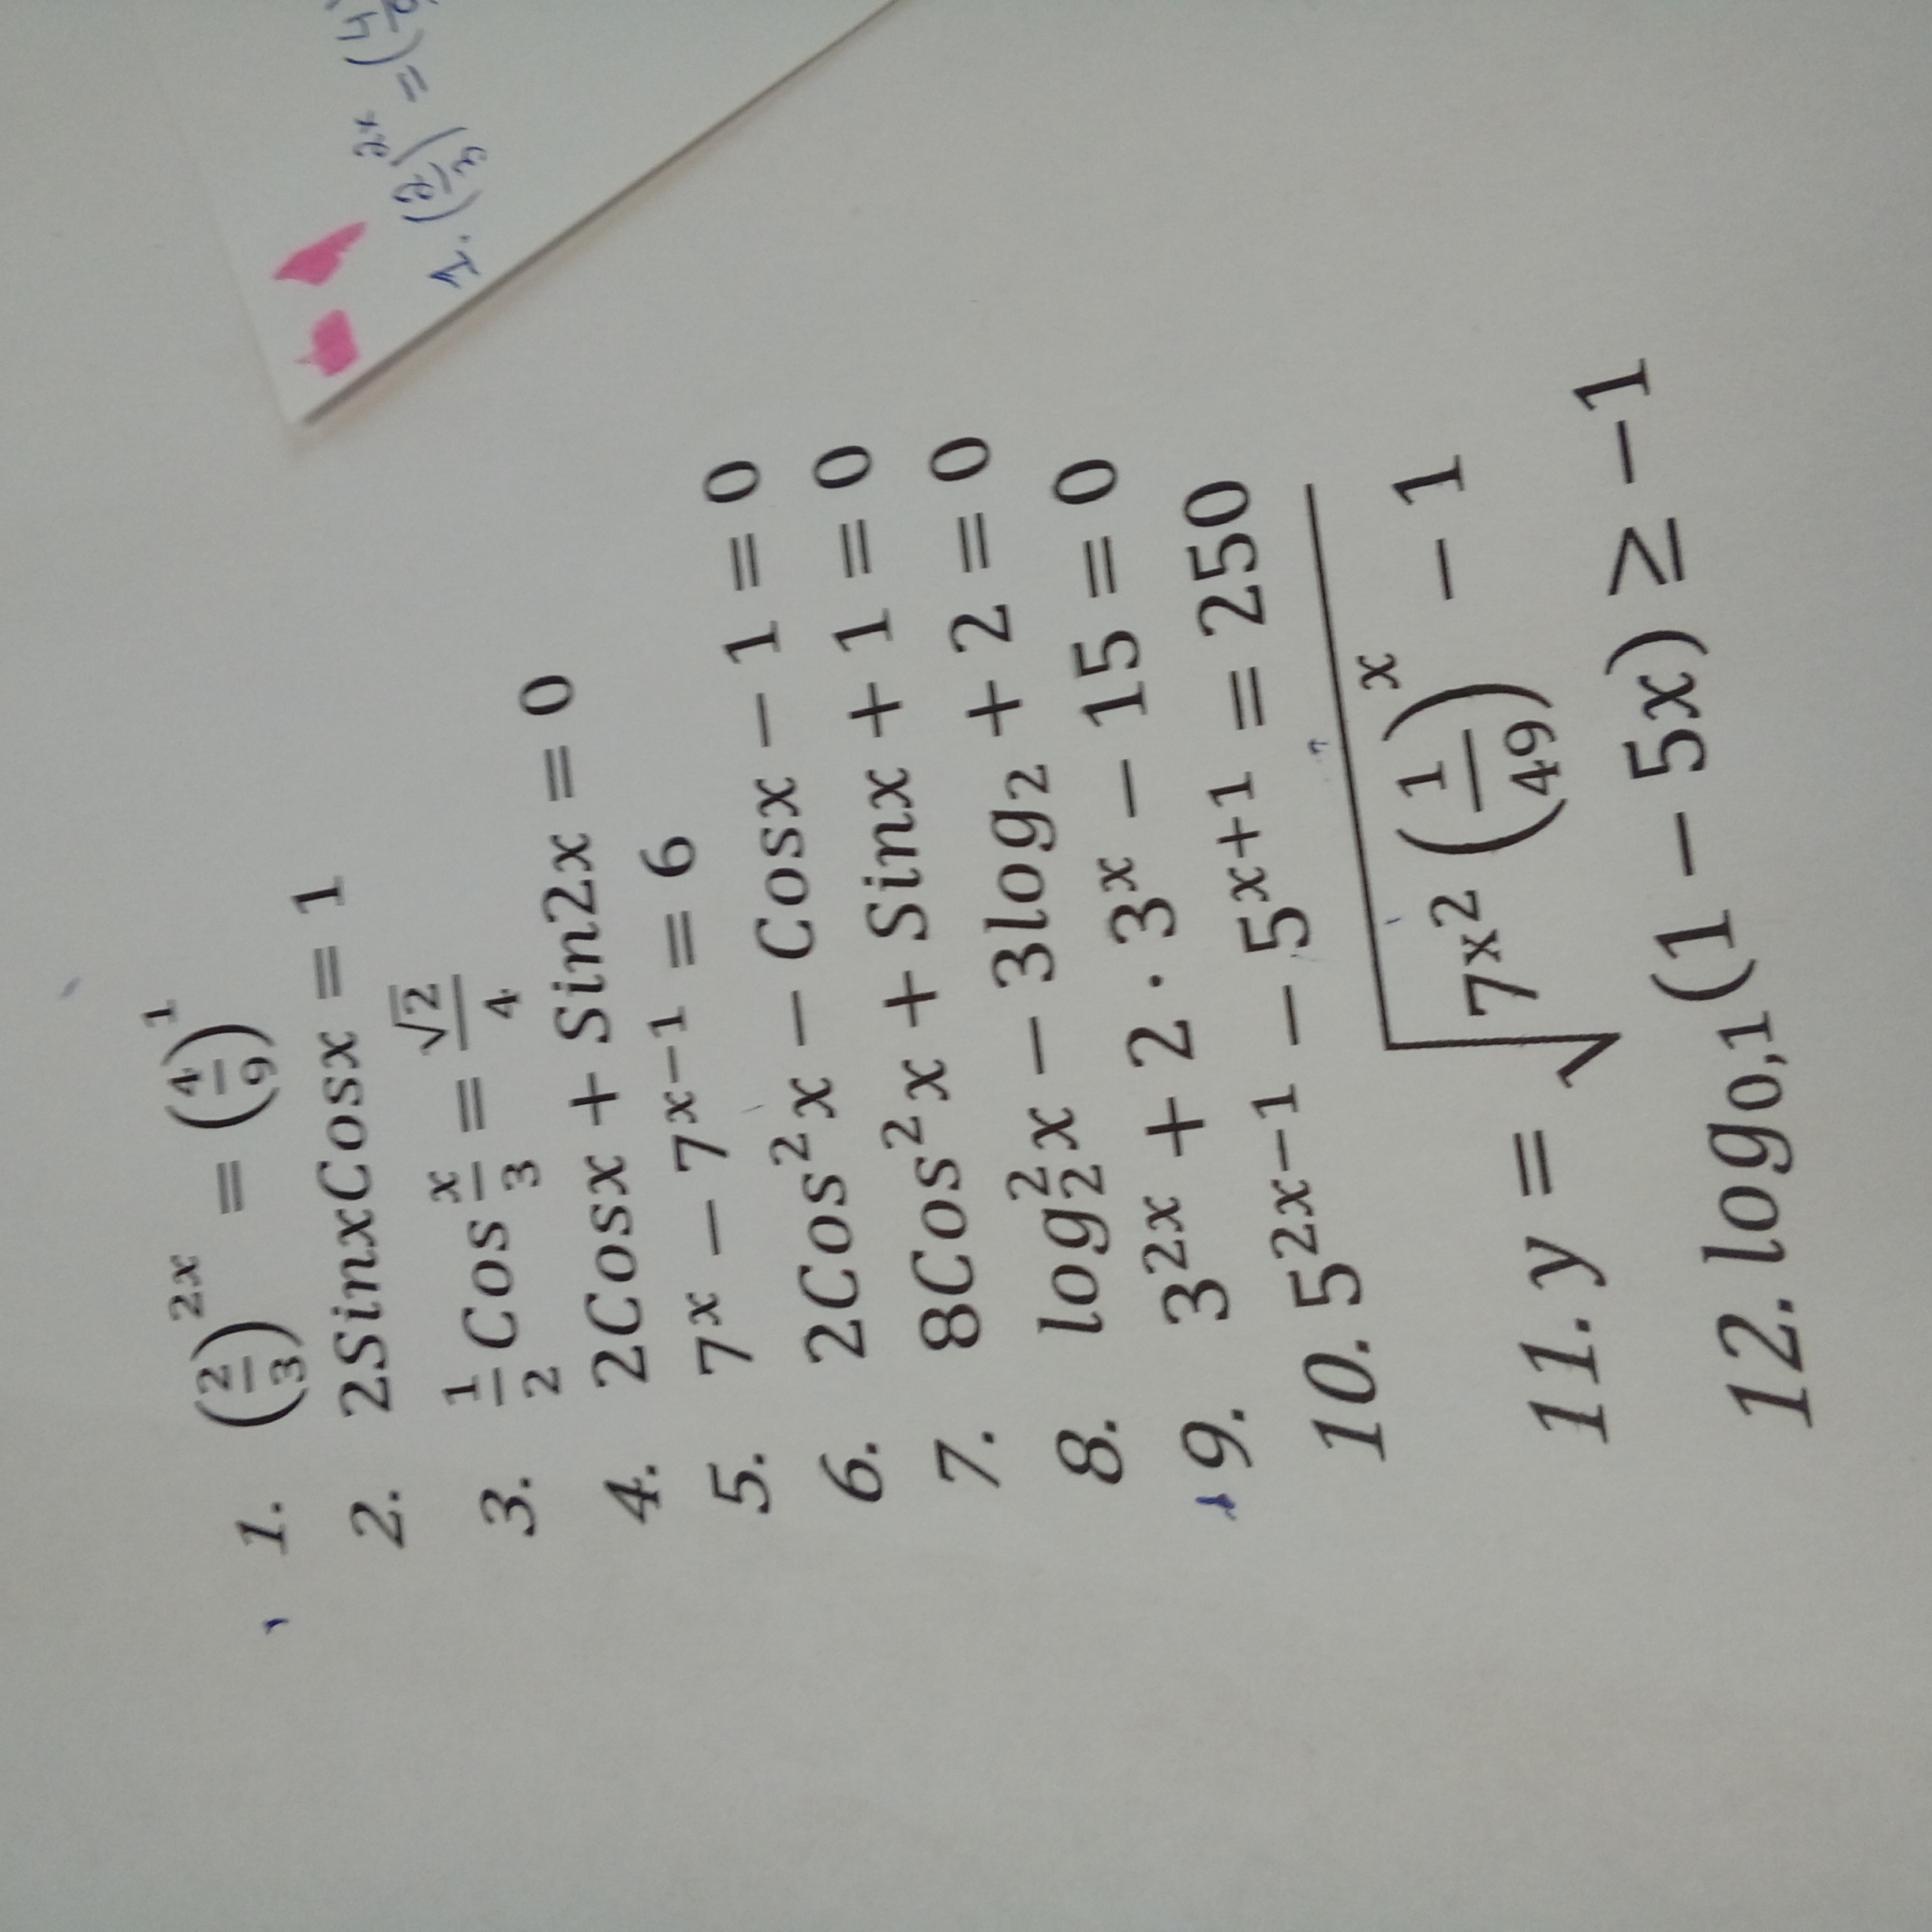 1. (2/3)^2x = (4/9)^1
2. 2SinxCosx = 1
3. 1/2 Cos x/3 = √2/4
4. 2Cosx + Sin2x = 0
5. 7^x − 7^x−1 = 6
6. 2Cos²x − Cosx − 1 = 0
7. 8Cos²x + Sinx + 1 = 0
8. log₂²x − 3log₂ + 2 = 0
9. 3^2x + 2 · 3^x − 15 = 0
10. 5^2x−1 − 5^x+1 = 250
11. y = √(7^x2 (1/49)^x − 1)
12. log₀,₁(1 − 5x) ≥ −1
1. (2/3)^2x = (4